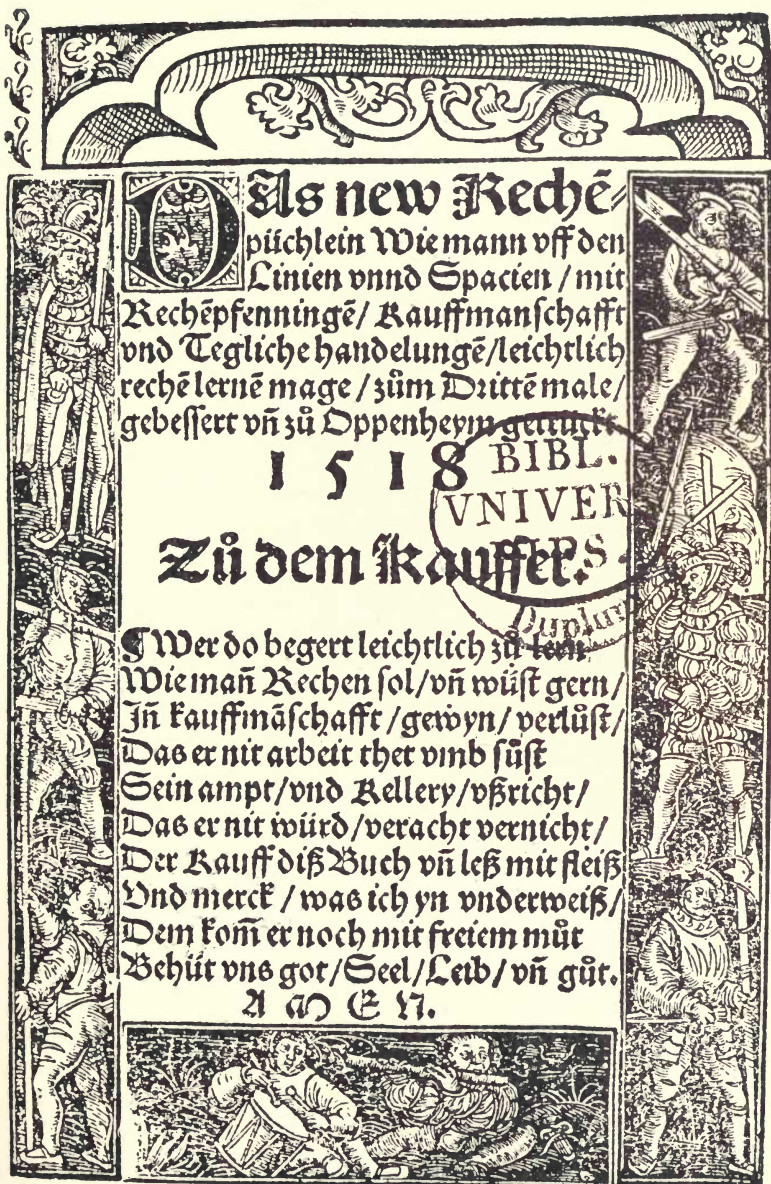 DAs new Rechē⸗
püchlein Wie mann vff den
Linien vnnd Spacien / mit
Rechēpfenningē / Kauffmanschafft
vnd Tegliche handelungē / leichtlich
rechē lernē mage / zům Drittē male /
gebessert vñ zů Oppenheym getruckt
1518
BIBL.
VNIVER
Zů dem Kauffer.
Duplum
¶ Wer do begert leichtlich zů lern
Wie mañ Rechen sol / vñ wüst gern /
Jñ kauffmāschafft / gewyn / verlůst /
Das er nit arbeit thet vmb sůst
Sein ampt / vnd Kellery / vßricht /
Das er nit würd / veracht vernicht /
Der Kauff diß Buch vñ leß mit fleiß
Vnd merck / was ich yn vnderweiß /
Dem kom̄ er noch mit freiem můt
Behüt vns got / Seel / Leib / vñ gůt.
AMEN.